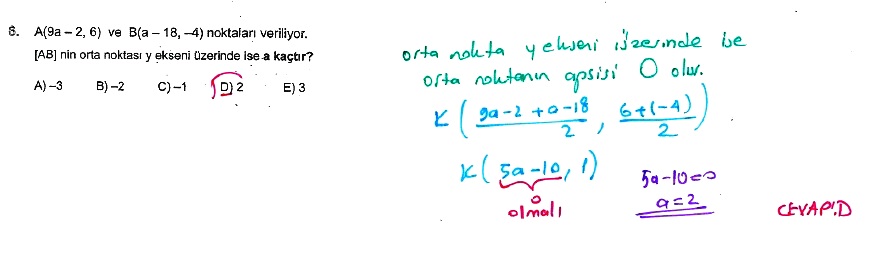 8. A(9a – 2, 6) ve B(a – 18, –4) noktaları veriliyor.
[AB] nin orta noktası y ekseni üzerinde ise a kaçtır?
A) –3 B) –2 C) –1 D) 2 E) 3
orta nokta y ekseni üzerinde ise
orta noktanın apsisi 0 olur.
K ( 9a-2+a-18 / 2 , 6+(-4) / 2 )
K( 5a-10, 1)
0
olmalı
5a-10=0
a=2
CEVAP:D